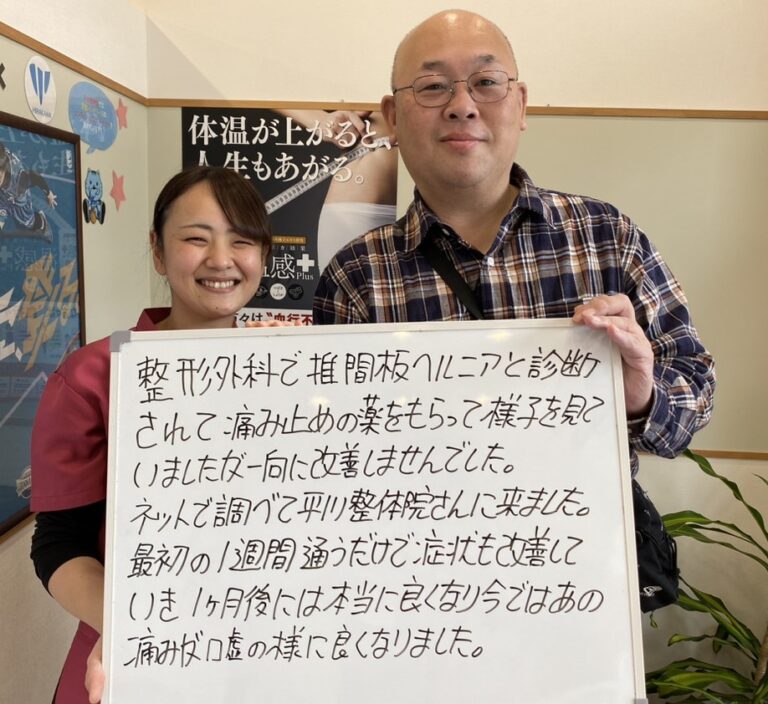 体温が上がると
人生もあがる。
感
Plus
整形外科で椎間板ヘルニアと診断
されて痛み止めの薬をもらって様子を見て
いましたが一向に改善しませんでした。
ネットで調べて平川整体院さんに来ました。
最初の1週間通うだけで症状も改善して
いき1ヶ月後には本当に良くなり今ではあの
痛みが嘘の様に良くなりました。